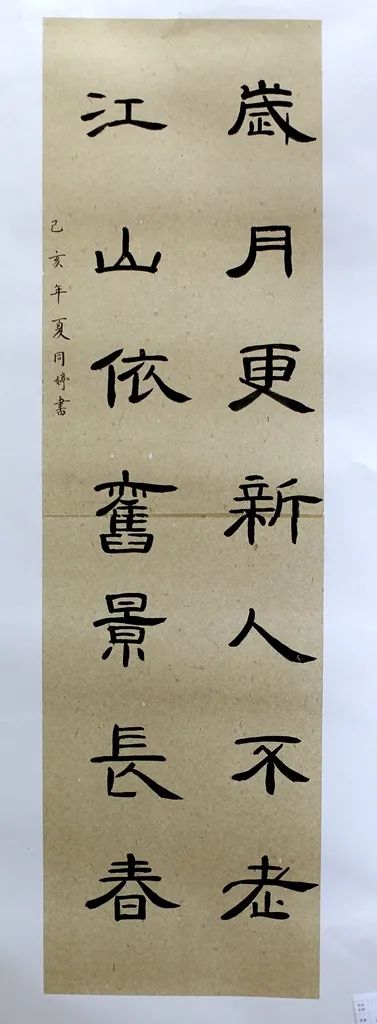 歲月更新人不老
江山依奮景長春
己亥年夏同婷書